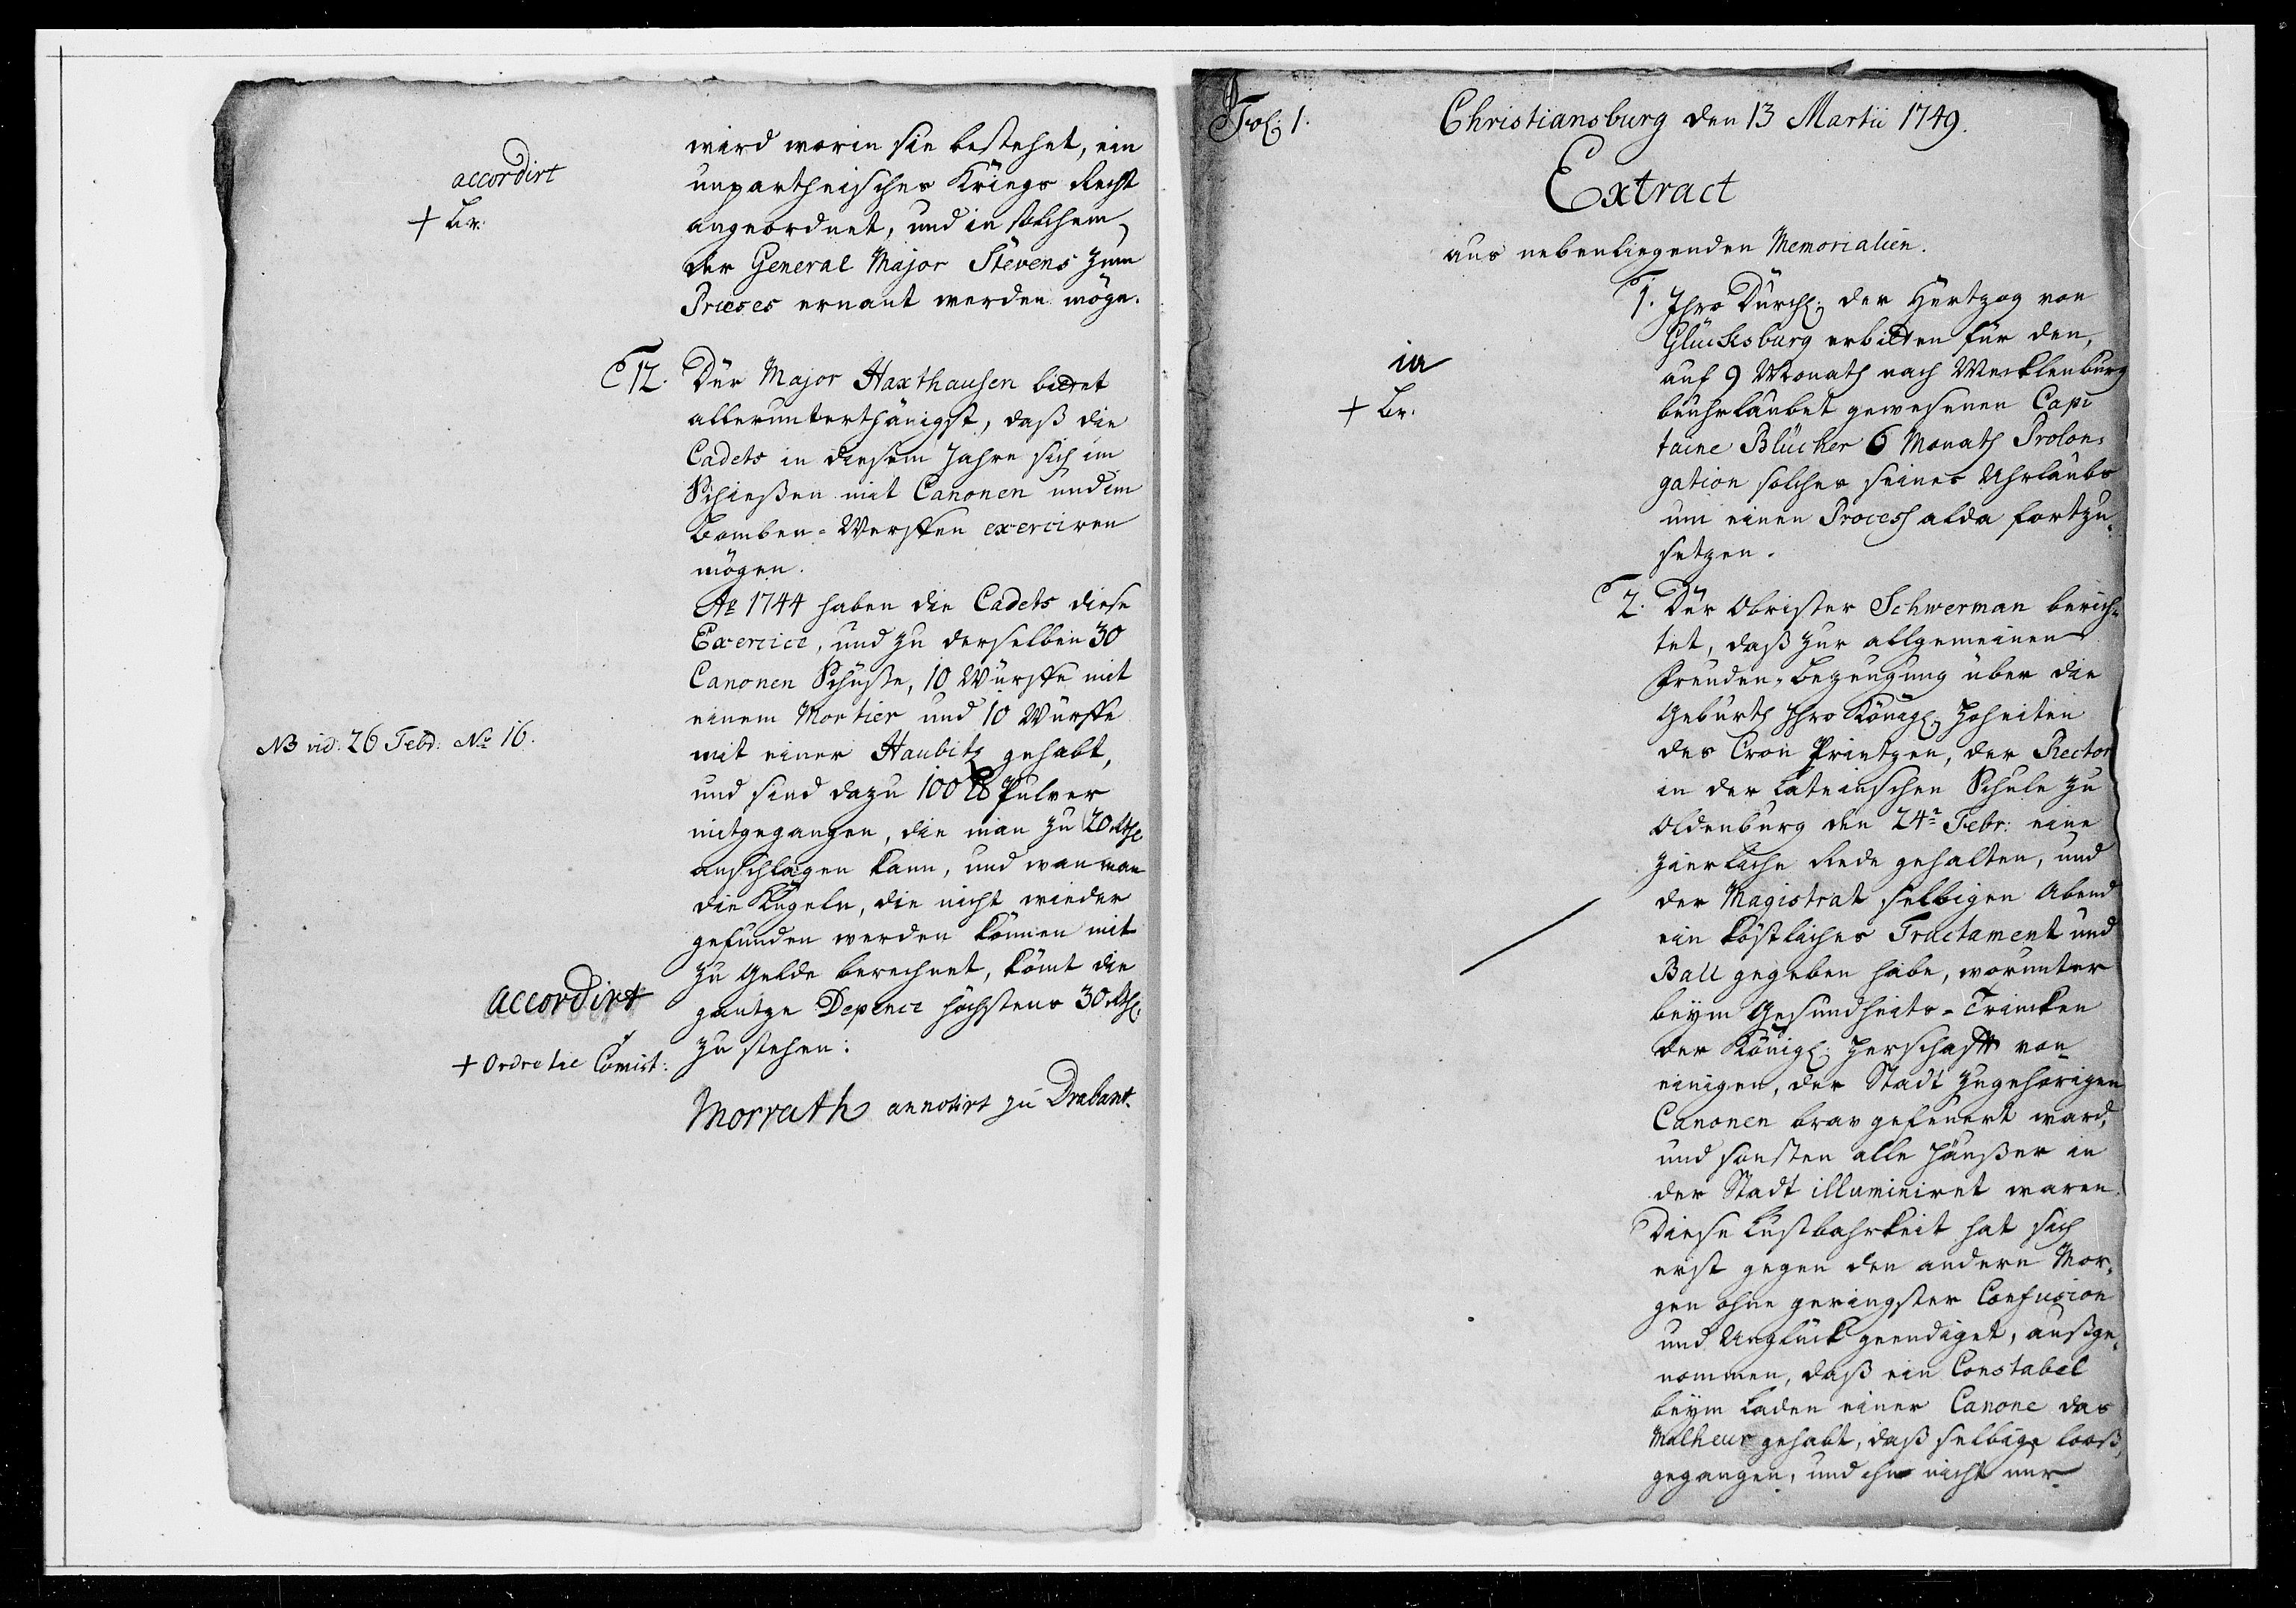 wird worin sie bestehet, ein
unpartheisches Kriegs Recht
angeordnet, und in solchem
der General Major Stevens zum
Præses ernant werden möge.
accordirt
+ Br.
12. Der Major Haxthausen bittet
allerunterthänigst, daß die
Cadets in diesem Jahre sich im
Schießen mit Canonen und im
Bomben-Werffen exerciren
mögen.
Ao 1744 haben die Cadets diese
Exercice, und zu derselben 30
Canonen Schüße, 10 Würffe mit
einem Mortier und 10 Würffe
NB vid. 26 Febr: No 16.
mit einer Haubitz gehabt,
und sind dazu 100 ℔ Pulver
mitgegangen, die man zu 20 Rthl
anschlagen kann, und wan man
die Kugeln, die nicht wieder
gefunden werden können mit
zu Gelde berechnet, kömt die
gantze Depence höchstens 30 Rthl.
zu stehen:
accordirt
+ Ordre til Comist:
Morrath annotirt zu Drabant.
Fol. 1.
Christiansburg den 13 Martii 1749.
Extract
aus nebenliegenden Memorialien.
1. Ihro Durchl. der Hertzog von
Glücksburg erbitten für den,
auf 9 Monath nach Mecklenburg
beuhrlaubet gewesenen Capi
taine Blücher 6 Monath Prolon=
gation solches seines Uhrlaubs
um einen Process alda fortzu=
setzen.
ia
+ Br.
2. Der Obrister Schwerman berich=
tet, daß zur allgemeinen
Freuden-Bezeugung über die
Geburth Ihro Königl. Hoheiten
des Cron Printzen, der Rector
in der Lateinschen Schule zu
Oldenburg den 24n Febr: eine
zierliche Rede gehalten, und
der Magistrat selbigen Abend
ein köstliches Tractament und
Ball gegeben habe, worunter
beym Gesundheits-Trincken
der Königl. Herschafft von
einigen, der Stadt zugehörigen
Canonen brav gefeuert ward,
und sonsten alle Häußer in
der Stadt illuminiret waren.
Diese Lustbahrkeit hat sich
erst gegen den andern Mor=
gen ohne geringster Confusion
und Unglück geendiget, außge=
nommen, daß ein Constabel
beym Laden einer Canone das
Malheur gehabt, daß selbige looß
gegangen, und ihn nicht nur